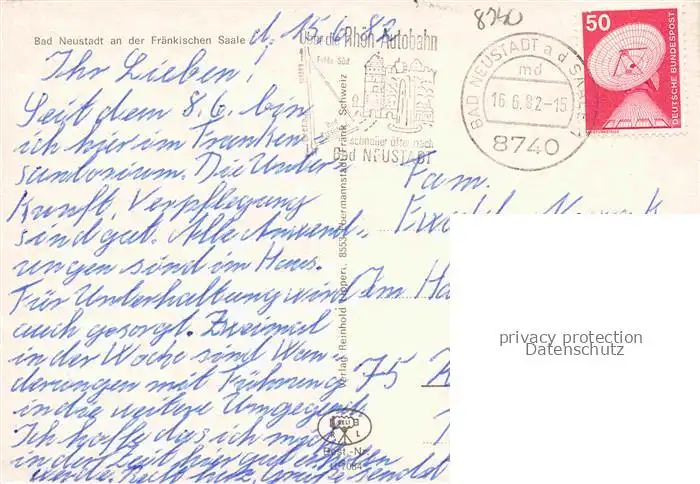 Bad Neustadt an der Fränkischen Saale
d. 15.6.82
Ihr Lieben!
Seit dem 8.6. bin
ich hier im Franken
sanatorium. Die Unter-
kunft, Verpflegung
sind gut. Alle Anwend-
ungen sind im Haus.
Für Unterhaltung wird
auch gesorgt. Zweimal
in der Woche sind Wan-
derungen mit Führung
in die weitere Umgegend
Ich hoffe das ich mich
in der Zeit hier gut
sendet
8740
Über die Rhön-Autobahn
Fulda Süd
schneller öfter nach
Bad NEUSTADT
BAD NEUSTADT a d SAALE 1
md
16.6.82-15
8740
50
DEUTSCHE BUNDESPOST
Fam.
Im Ha
75 K
Verlag Reinhold
8553 Ebermannstadt Fränk. Schweiz
Best.-Nr.
privacy protection
Datenschutz